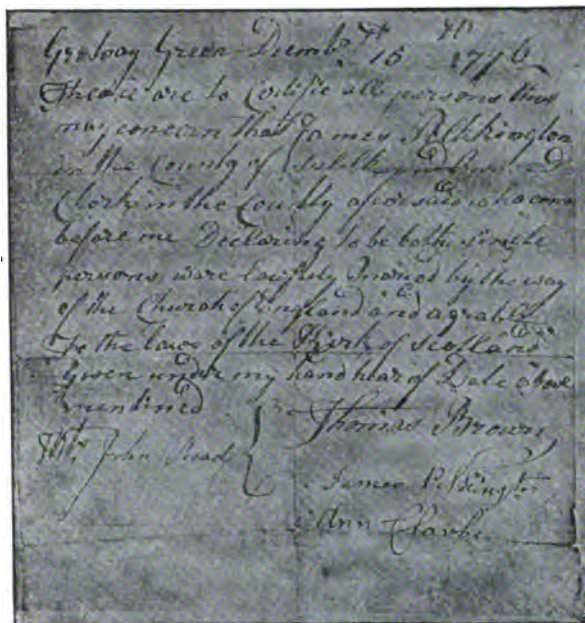 Gretnay Green Decmbr 15 1776
These are to Certifie all persons thes
may concern that James Pilkington
in the County of and
Clark in the County aforesaid who coms
before me Declaring to be both single
persons were lawfuly Maried by the way
of the Church of England and agrable
to the laws of the Kirk of Scotland
Given under my hand hear of Date above
mentined
Thomas Brown
Witn John Read
James Pilkington
Ann Clark